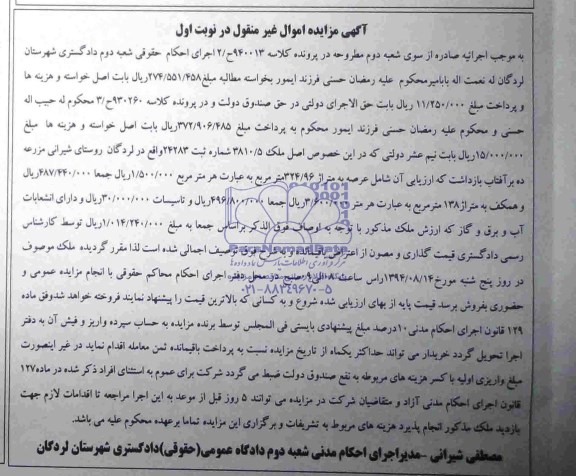 آگهی مزایده اموال غیر منقول در نوبت اول
به موجب اجرائیه صادره از سوی شعبه دوم مطروحه در پرونده کلاسه ۹۴۰۰۱۳ح/۲ اجرای احکام حقوقی شعبه دوم دادگستری شهرستان
لردگان له نعمت اله بابامیر محکوم علیه رمضان حسنی فرزند ایمور بخواسته مطالبه مبلغ۲۷۴/۵۵۱/۴۵۸ ریال بابت اصل خواسته و هزینه ها
و پرداخت مبلغ ۱۱/۲۵۰/۰۰۰ ریال بابت حق الاجرای دولتی در حق صندوق دولت و در پرونده کلاسه ۹۳۰۲۶۰ح/۳ محکوم له حبیب اله
حسنی و محکوم علیه رمضان حسنی فرزند ایمور محکوم به پرداخت مبلغ ۳۷۲/۹۰۶/۴۸۵ریال بابت اصل خواسته و هزینه ها مبلغ
۱۵/۰۰۰/۰۰۰ریال بابت نیم عشر دولتی که در این خصوص اصل ملک ۳۸۱۰/۵ شماره ثبت ۲۴۲۸۳واقع در لردگان روستای شیرانی مزرعه
ده برآفتاب بازداشت که ارزیابی آن شامل عرصه به متراژ ۳۲۴/۹۶متر مربع به عبارت هر متر مربع ۱/۵۰۰/۰۰۰ریال جمعا ۴۸۷/۴۴۰/۰۰۰ریال
و همکف به متراژ۱۳۸ مترمربع به عبارت هر متر ۳/۶۰۰/۰۰۰ریال جمعا ۴۹۶/۸۰۰/۰۰۰ریال و تاسیسات ۳۰/۰۰۰/۰۰۰ریال و دارای انشعابات
آب و برق و گاز که ارزش ملک مذکور با توجه به اوصاف فوق الذکر براساس جمعا به مبلغ ۱/۰۱۴/۲۴۰/۰۰۰ریال توسط کارشناس
رسمی دادگستری قیمت گذاری و مصون از اعتراض باقیمانده و به شرح فوق توصیف اجمالی شده است لذا مقرر گردیده ملک موصوف
در روز پنج شنبه مورخ۱۳۹۴/۰۸/۱۴راس ساعت ۰۹/۰۸صبح در محل دفتر اجرای احکام محاکم حقوقی با انجام مزایده عمومی و
حضوری بفروش برسد قیمت پایه از بهای ارزیابی شده شروع و به کسانی که بالاترین قیمت را پیشنهاد نمایند فروخته خواهد شدوفق ماده
۱۲۹ قانون اجرای احکام مدنی۱۰درصد مبلغ پیشنهادی بایستی فی المجلس توسط برنده مزایده به حساب سپرده واریز و فیش آن به دفتر
اجرا تحویل گردد خریدار می تواند حداکثر یکماه از تاریخ مزایده نسبت به پرداخت باقیمانده ثمن معامله اقدام نماید در غیر اینصورت
مبلغ واریزی اولیه با کسر هزینه های مربوطه به نفع صندوق دولت ضبط می گردد شرکت برای عموم به استثنای افراد ذکر شده در ماده۱۲۷
قانون اجرای احکام مدنی آزاد و متقاضیان شرکت در مزایده می توانند ۵ روز قبل از موعد به این اجرا مراجعه تا اقدامات لازم جهت
بازدید ملک مذکور انجام پذیرد هزینه های مربوط به تشریفات و برگزاری این مزایده تماما برعهده محکوم علیه می باشد.
مصطفی شیرانی -مدیراجرای احکام مدنی شعبه دوم دادگاه عمومی(حقوقی)دادگستری شهرستان لردگان
ParsNamadData
۰۲۱-۸۸۳۴۹۶۷۰-۵